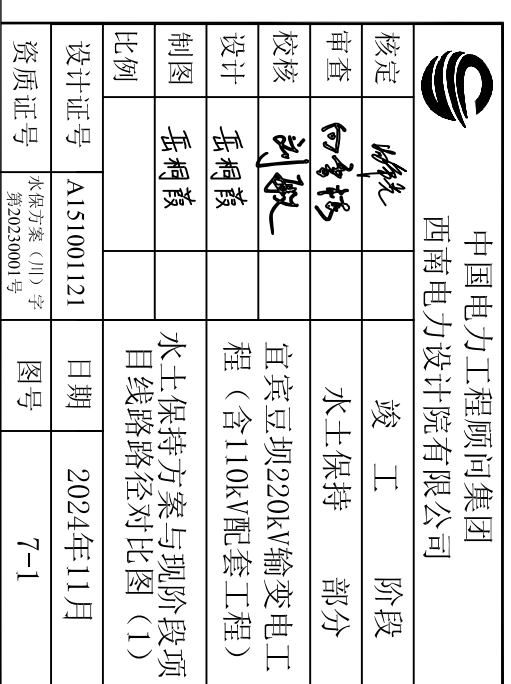 中国电力工程顾问集团
西南电力设计院有限公司
核定
竣 工 阶段
审查
水土保持 部分
校核
宜宾豆坝220kV输变电工
程（含110kV配套工程）
设计 岳桐葭
制图 岳桐葭
水土保持方案与现阶段项
目线路路径对比图（1）
比例
设计证号 A151001121 日期 2024年11月
资质证号 水保方案（川）字
第20230001号
图号 7-1